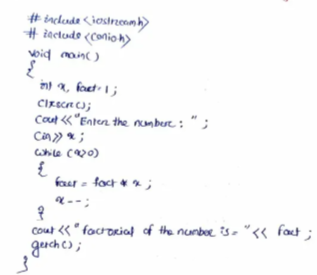 # include <iostream.h>
# include <conio.h>
void main()
{
int x, fact=1;
clrscr();
cout <<"Enter the number : " ;
cin>> x ;
while (x>0)
{
fact = fact * x ;
x-- ;
}
cout <<" factorial of the number is = "<< fact ;
getch() ;
}